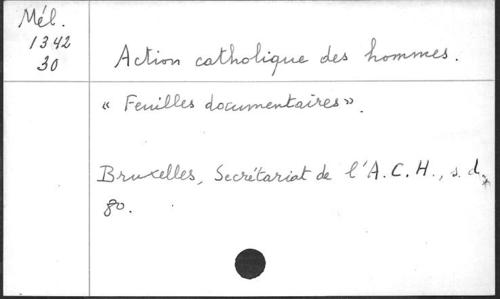 Mél.
1342
30
Action catholique des hommes.
« Feuilles documentaires ».
Bruxelles, Secrétariat de l'A.C.H., s.d.,
8o.